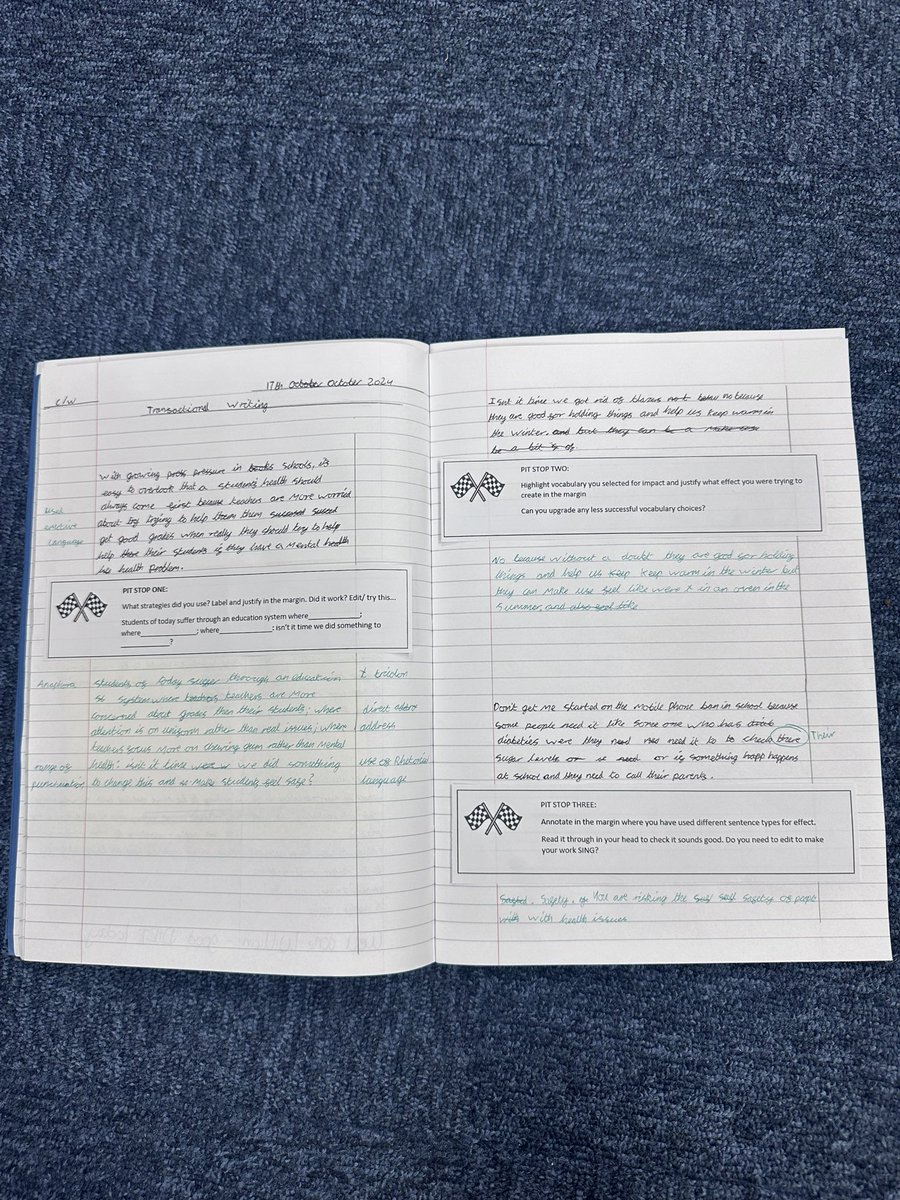 C/W
17th October October 2024
Transactional Writing
With growing press pressure in books schools, its
easy to overlook that a students health should
always come first because teachers are more worried
about try trying to help them them succeed succed
get good grades when really they should try to help
help there their students is they have a mental health
health problem.
Used
emotive
language
PIT STOP ONE:
What strategies did you use? Label and justify in the margin. Did it work? Edit/ try this...
Students of today suffer through an education system where ;
where ; where : isn't it time we did something to
?
Anaphora
range of
punctuation
Students of today suffer through an education
system where teachers teachers are more
concerned about grades than their students; where
attention is on uniforms rather than real issues; where
teachers focus more on chewing gum rather than mental
health: isn't it time we did something
to change this and make students feel safe?
tricolon
direct
address
use of Rhetorical
language
Isnt it time we got rid of blazers no because
they are good for holding things and help us keep warm in
the winter. and but they can be a
be a bit of
PIT STOP TWO:
Highlight vocabulary you selected for impact and justify what effect you were trying to
create in the margin
Can you upgrade any less successful vocabulary choices?
No because without a doubt they are good for holding
things and help us keep keep warm in the winter but
they can make use feel like were in an oven in the
summer, and also
Don't get me started on the mobile Phone ban in school because
some people need it like some one who has
diabeties were they need need it to to check there
Their
sugar levels or is need or is something happ happens
at school and they need to call their parents.
PIT STOP THREE:
Annotate in the margin where you have used different sentence types for effect.
Read it through in your head to check it sounds good. Do you need to edit to make
your work SING?
Safety, You are risking the safety of
with with health issues